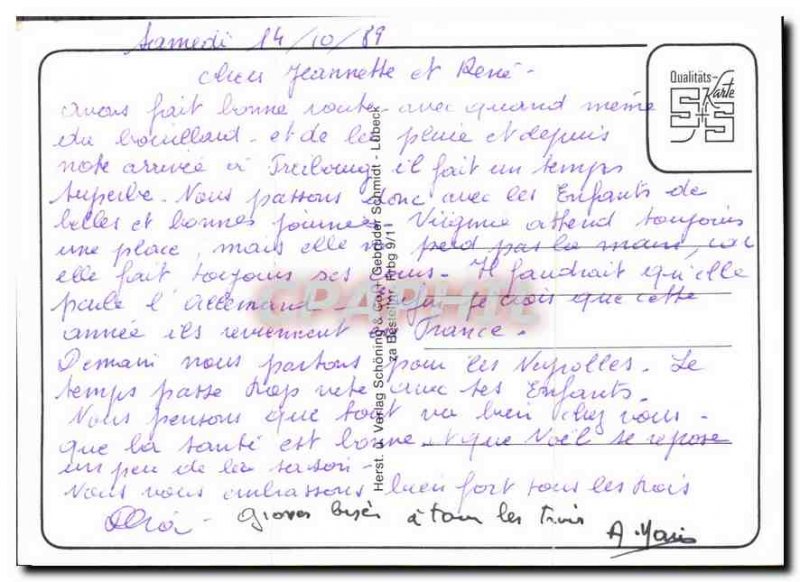 Samedi 14/10/89
Chers Jeannette et René -
avons fait bonne route avec quand même
du brouillard - et de la pluie et depuis
note arrivée à Freibourg il fait un temps
superbe. Nous passons donc avec les Enfants de
belles et bonnes journées Virginie attend toujours
une place, mais elle ne perd pas la main, car
elle fait toujours ses cours - Il faudrait qu'elle
parle l'Allemand - je crois que cette
année ils reviennent France.
Demain nous partons pour les Les
temps passe trop vite avec ses Enfants.
Nous pensons que tout va bien chez vous -
que la santé est bonne et que Noël se repose
un peu de la saison -
Nous vous embrassons bien fort tous les trois
Grosses bises à tous les Trois
A. Marie
Qualitäts-Karte
S+S
Herst. u. Verlag Schöning & Co + Gebrüder Schmidt - Lübeck
za Bestell-Nr. Frbg 9/11